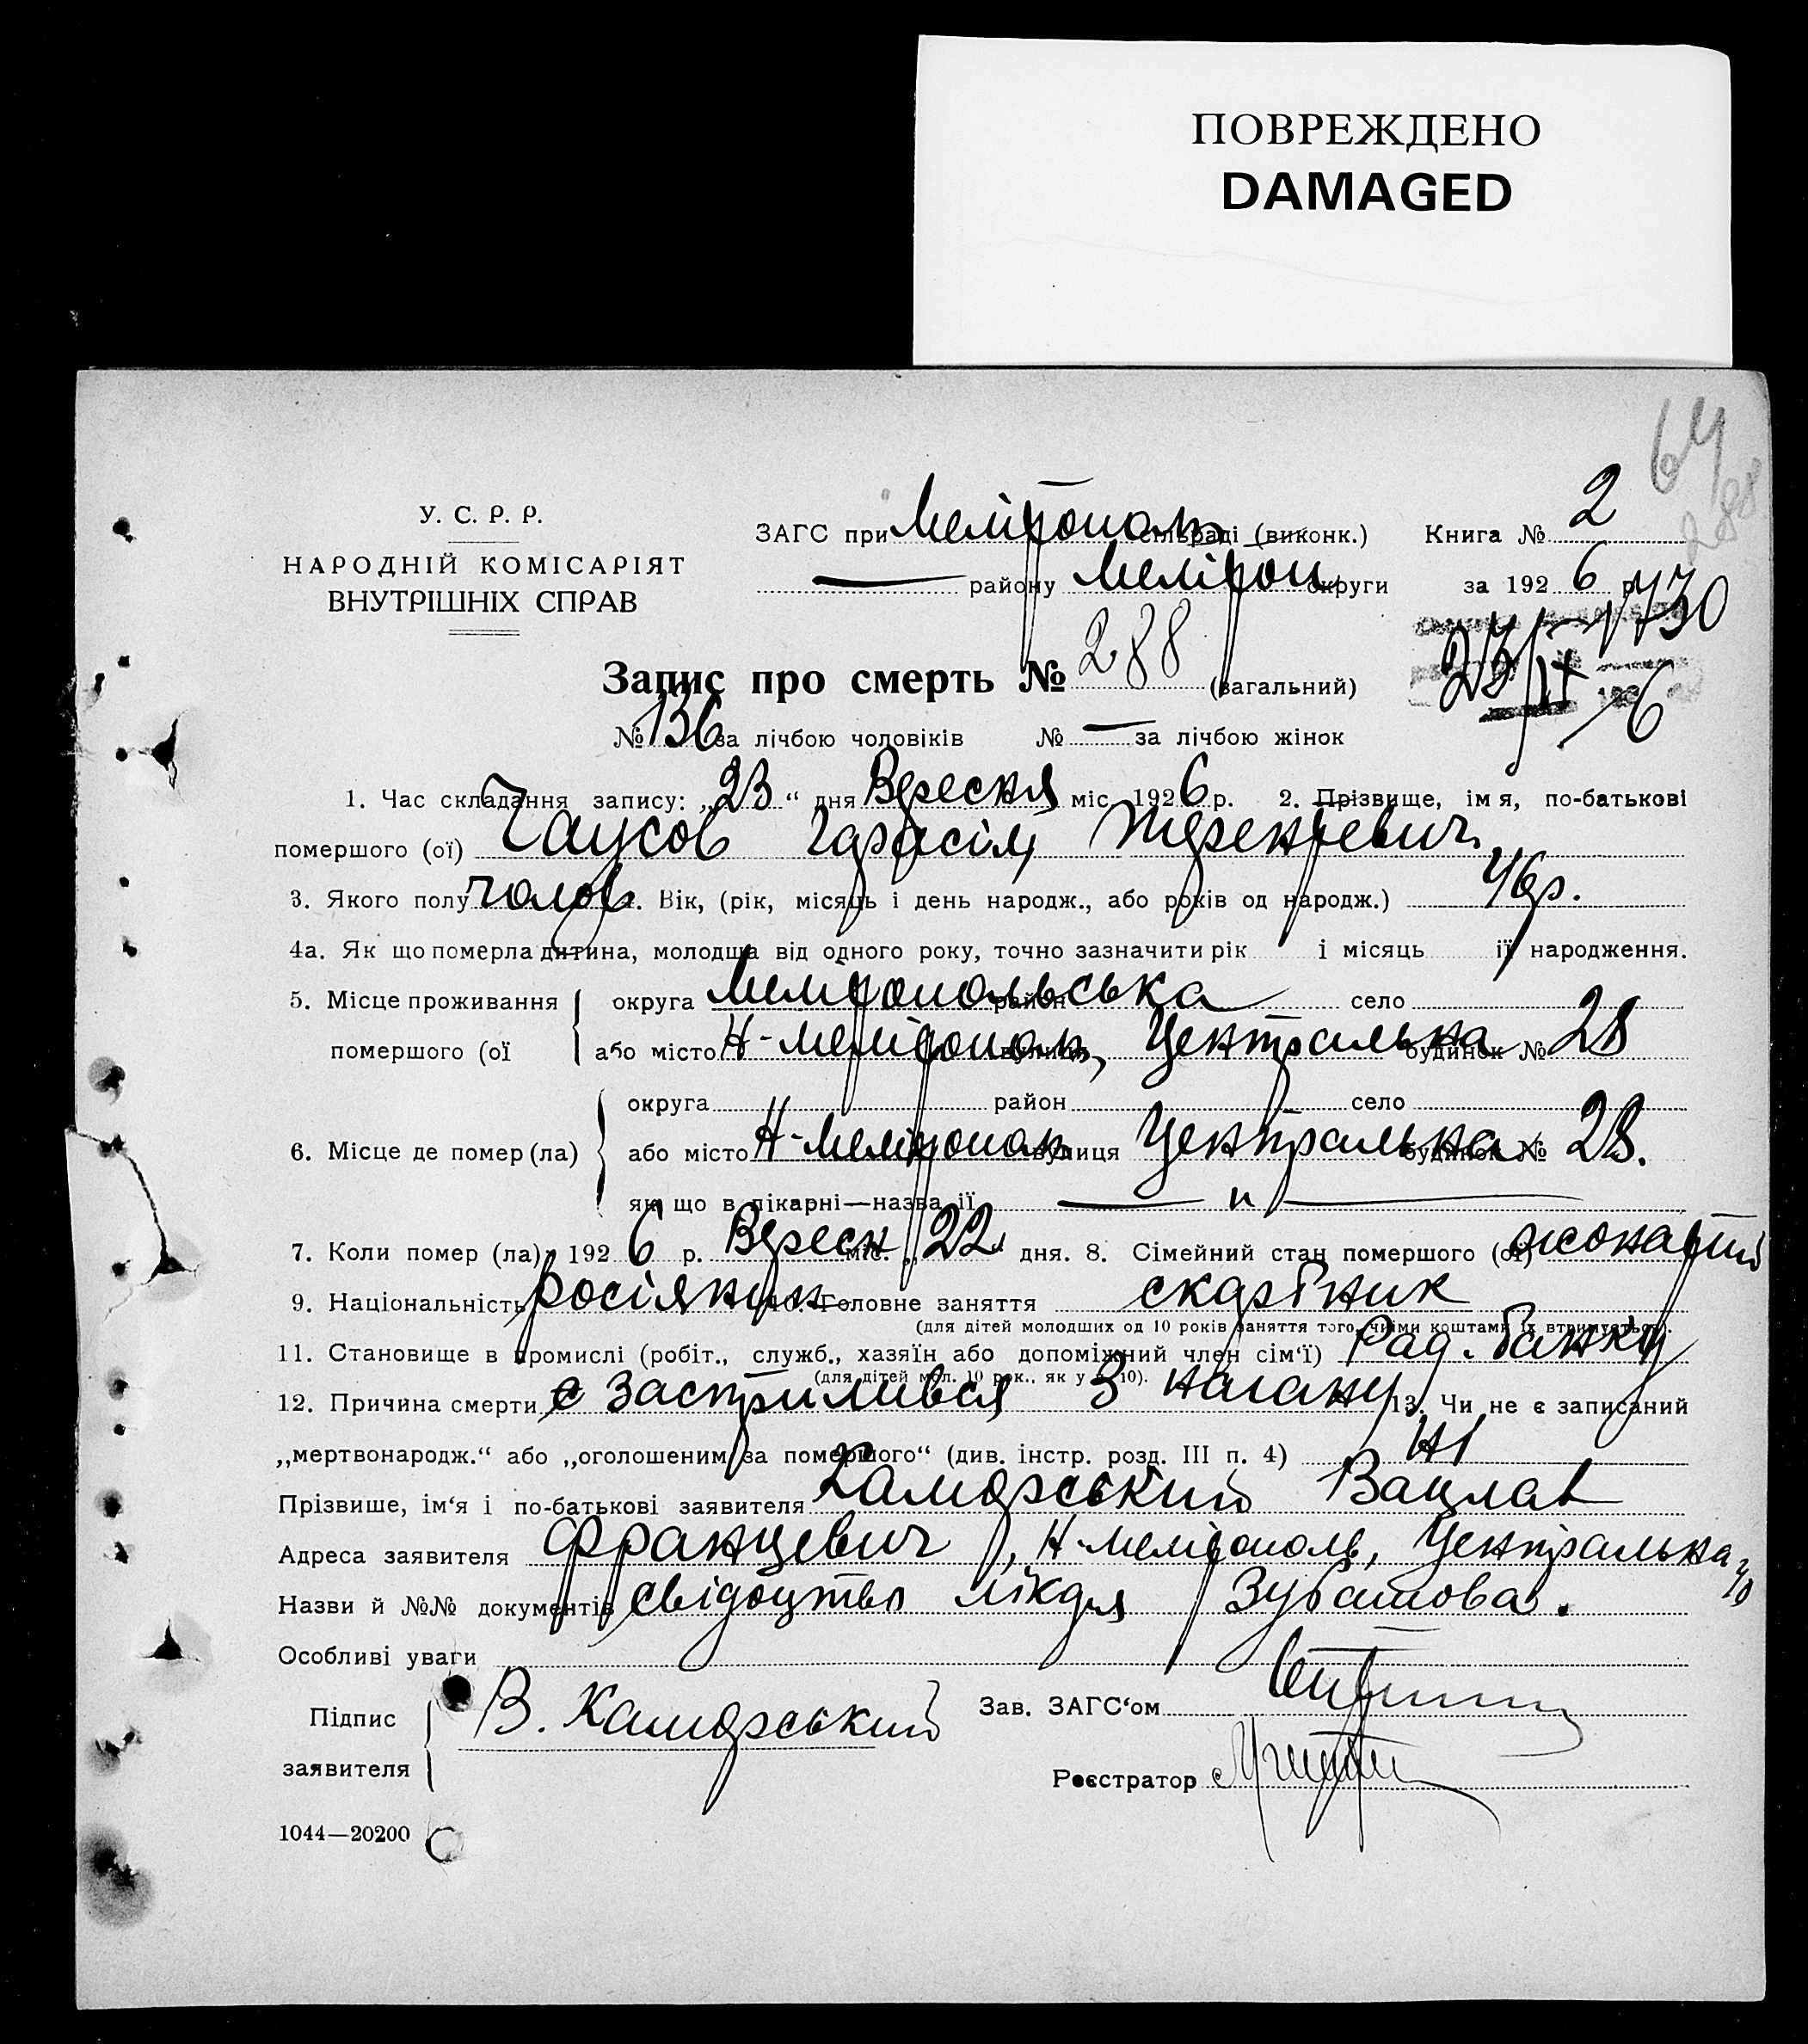 ПОВРЕЖДЕНО
DAMAGED
64
288
У. С. Р. Р.
НАРОДНІЙ КОМІСАРІЯТ
ВНУТРІШНІХ СПРАВ
ЗАГС при Мелітополь сільраді (виконк.) Книга № 2
— району Меліtоп округи за 1926 р.
1730
Запис про смерть № 288 (загальний)
23/IX 6
№ 136 за лічбою чоловіків № — за лічбою жінок
1. Час складання запису: „23“ дня Вересня міс. 1926 р. 2. Прізвище, імя, по-батькові
помершого (ої) Чаусов Гарасім Терентьевич
3. Якого полу чолов. Вік, (рік, місяць і день народж., або років од народж.) 46 р.
4а. Як що померла дитина, молодща від одного року, точно зазначити рік і місяць її народження.
5. Місце проживання округа Мелітопольська район село
помершого (ої або місто Н-Мелітополь, вулиця Централька будинок № 28
округа район село
6. Місце де помер (ла) або місто Н-Мелітополь вулиця Централька будинок № 28.
як що в лікарні—назва її — „ —
7. Коли помер (ла) 1926 р. Вересн міс. „22“ дня. 8. Сімейний стан помершого (ої) жонатий
9. Національність росіянин 10. Головне заняття скарбник
(для дітей молодших од 10 років заняття того, чиїми коштами їх втримується).
11. Становище в промислі (робіт., служб., хазяїн або допоміжний член сім‘ї) Рад. банку
(для дітей мол. 10 рок., як у п. 10).
12. Причина смерти застрилився З нагану 13. Чи не є записаний
„мертвонародж.“ або „оголошеним за помершого“ (див. інстр. розд. III п. 4) Ні
Прізвише, ім‘я і по-батькові заявителя Каморський Вацлав
Адреса заявителя Францевич, Н-Мелітополь, Централька
Назви й №№ документів Свідоцтво лікаря Зубашова.
Особливі уваги
Підпис
заявителя
В. Каморський
Зав. ЗАГС‘ом
Реєстратор
1044—20200